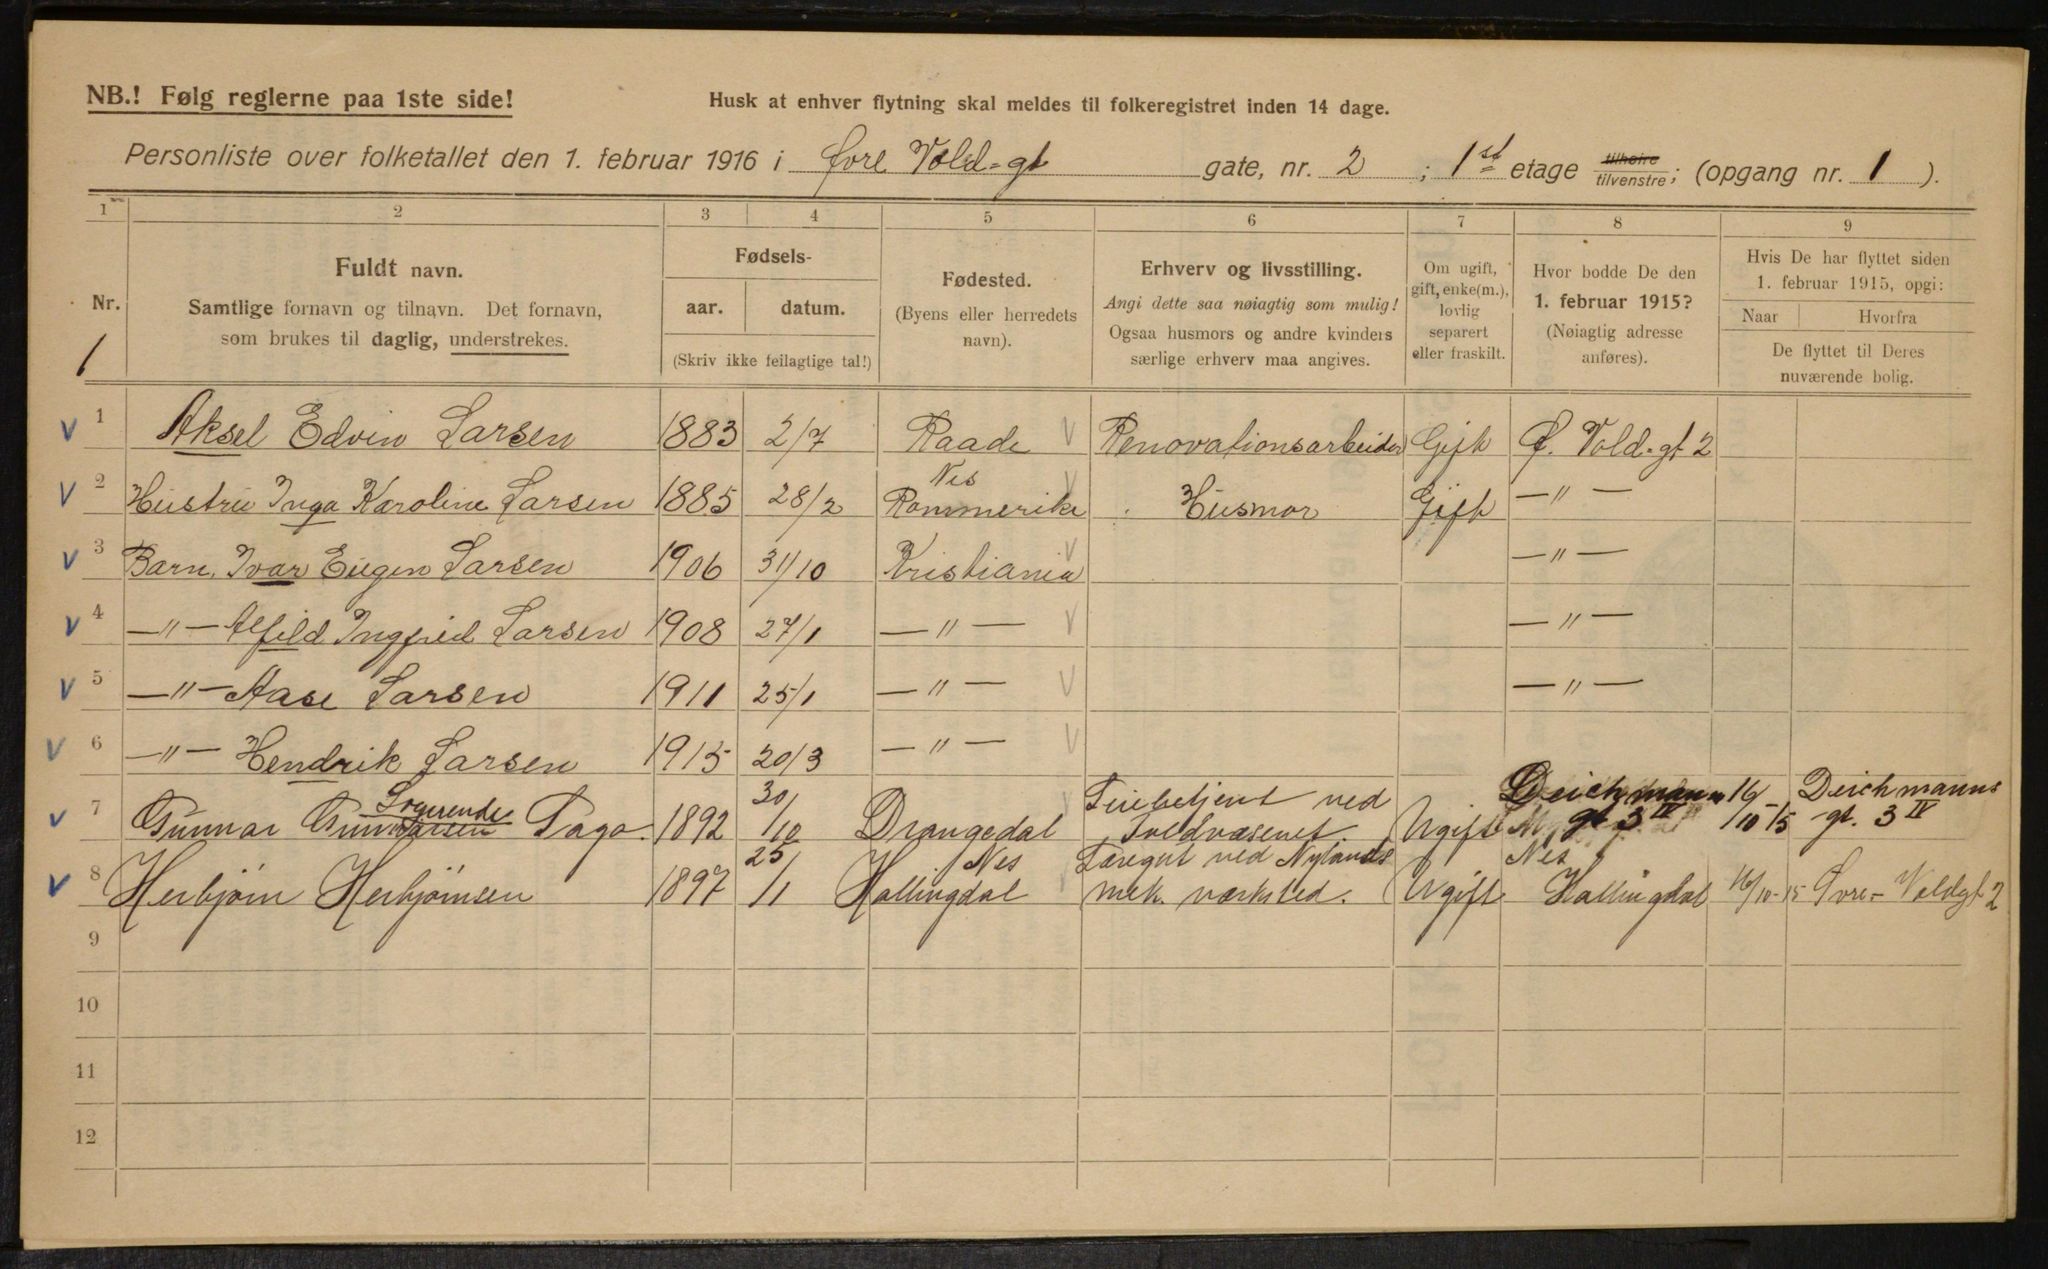 NB.! Følg reglerne paa 1ste side!
Husk at enhver flytning skal meldes til folkeregistret inden 14 dage.
Personliste over folketallet den 1. februar 1916 i Øvre Vold-gt gate, nr. 2 ; 1st etage tilhøire tilvenstre; (opgang nr. 1 ).
1 2 3 4 5 6 7 8 9
Nr.
1
Fuldt navn.
Samtlige fornavn og tilnavn. Det fornavn,
som brukes til daglig, understrekes.
Fødsels-
aar. datum.
(Skriv ikke feilagtige tal!)
Fødested.
(Byens eller herredets
navn).
Erhverv og livsstilling.
Angi dette saa nøiagtig som mulig!
Ogsaa husmors og andre kvinders
særlige erhverv maa angives.
Om ugift,
gift, enke(m.),
lovlig
separert
eller fraskilt.
Hvor bodde De den
1. februar 1915?
(Nøiagtig adresse
anføres).
Hvis De har flyttet siden
1. februar 1915, opgi:
Naar Hvorfra
De flyttet til Deres
nuværende bolig.
V 1 Aksel Edvin Larsen 1883 2/7 Raade V Renovationsarbeider Gift Ø. Vold-gt 2
V 2 Hustru Inga Karoline Larsen 1885 28/2 Nes Rommerike V Husmor Gift —"—
V 3 Barn, Ivar Eugen Larsen 1906 31/10 Kristiania V —"—
V 4 —"— Alfild Ingfrid Larsen 1908 27/1 —"— V —"—
V 5 —"— Aase Larsen 1911 25/1 —"— V —"—
V 6 —"— Hendrik Larsen 1915 20/3 —"— V
Logerende
V 7 Gunnar Tago 1892 30/10 Drangedal ved Toldvæsenet. Ugift Deichmann gt 3 IV 16/10-15 Deichmanns gt. 3 IV
V 8 Herbjørn Herbjørnsen 1897 25/1 Nes Hallingdal ved Nylands mek. værksted. Ugift Nes Hallingdal 16/10-15 Øvre-Voldgt 2
9
10
11
12